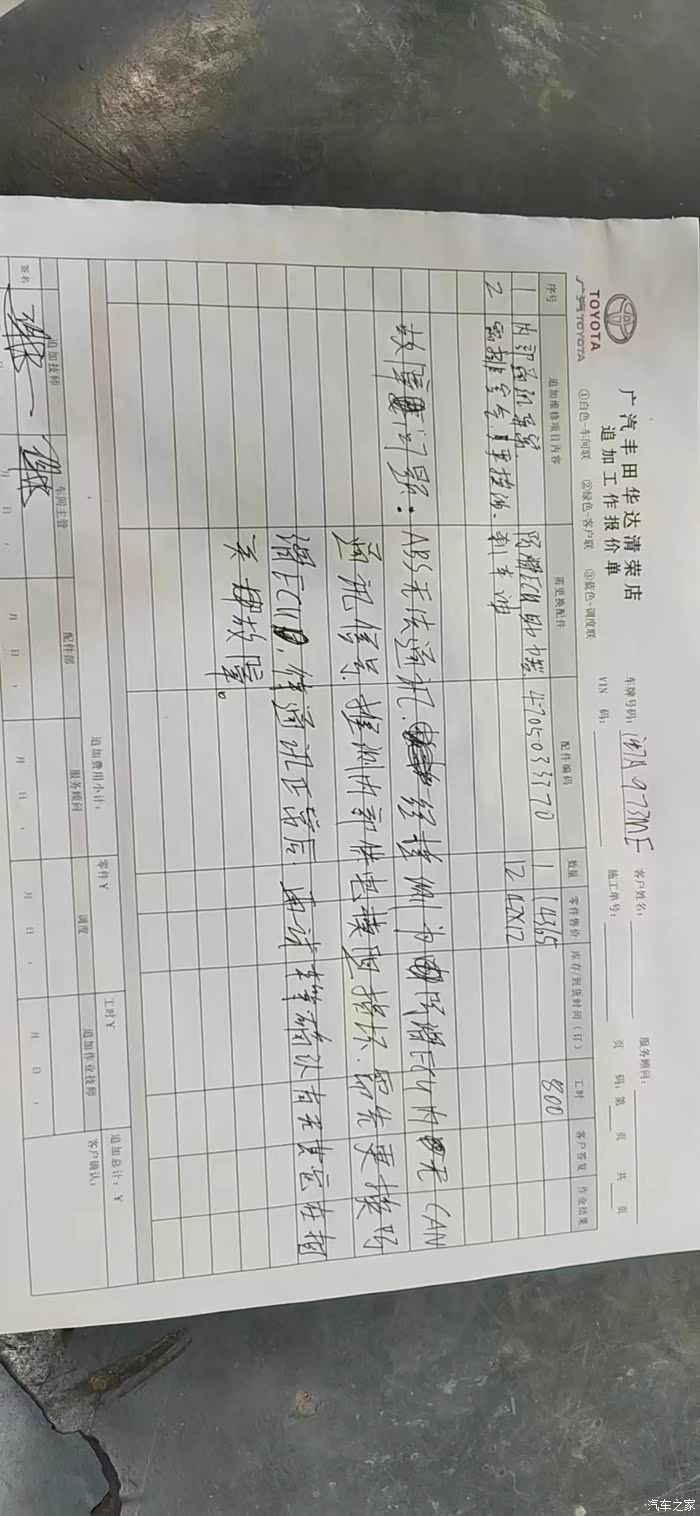 TOYOTA
广汽TOYOTA
广汽丰田华达清荣店
追加工作报价单
①白色-车间联 ②绿色-客户联 ③蓝色-调度联
车牌号码: 973ME 客户姓名: 服务顾问:
VIN 码: 施工单号: 页 码:第 页 共 页
序号 追加维修项目内容 需更换配件 配件编码 数量 零件售价 库存/到货时间(订) 工时 客户答复 作业结果
1 内部通讯异常 防滑ECU 4705033370 1 14365 800
2 需排空气 刹车油 12 42X12
故障问题: ABS无法通讯、经检测为防滑ECU内无CAN
通讯信号.推测内部供电模块损坏.需先更换防
滑ECU,待通讯正常后,再试车确认有无其它相
关故障。
追加费用小计: 零件¥ 工时¥ 追加总计:¥
追加技师 车间主管 配件部 服务顾问 调度 追加作业技师 客户确认:
签名
月 日 : 月 日 : 月 日 : 月 日 : 月 日 :
汽车之家